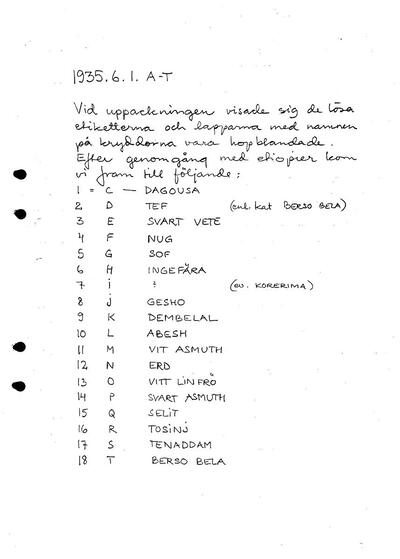 1935.6.1. A-T
Vid uppackningen visade sig de lösa
etiketterna och lapparna med namnen
på kryddorna vara hopblandade.
Efter genomgång med etiopier kom
vi fram till följande:
1 = C — DAGOUSA
2 D TEF (enl. kat BERSO BELA)
3 E SVART VETE
4 F NUG
5 G SOF
6 H INGEFÄRA
7 i ? (ev. KORERIMA)
8 j GESHO
9 K DEMBELAL
10 L ABESH
11 M VIT ASMUTH
12 N ERD
13 O VITT LINFRÖ
14 P SVART ASMUTH
15 Q SELIT
16 R TOSINJ
17 S TENADDAM
18 T BERSO BELA